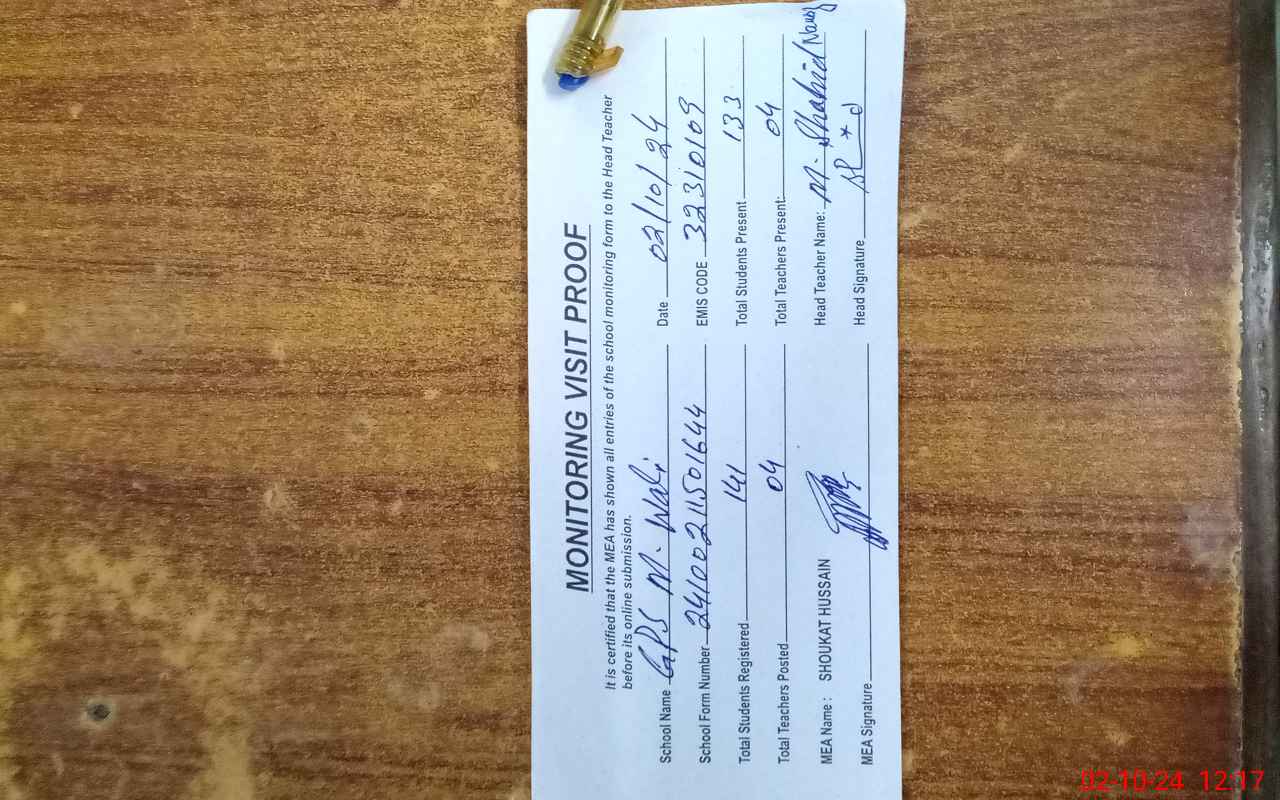 MONITORING VISIT PROOF
It is certified that the MEA has shown all entries of the school monitoring form to the Head Teacher
before its online submission.
School Name GPS M. Wali Date 02/10/24
School Form Number 24100211501644 EMIS CODE 32310109
Total Students Registered 141 Total Students Present 133
Total Teachers Posted 04 Total Teachers Present: 04
MEA Name : SHOUKAT HUSSAIN Head Teacher Name: M. Shahid Nawaz
MEA Signature Head Signature
02-10-24 12:17